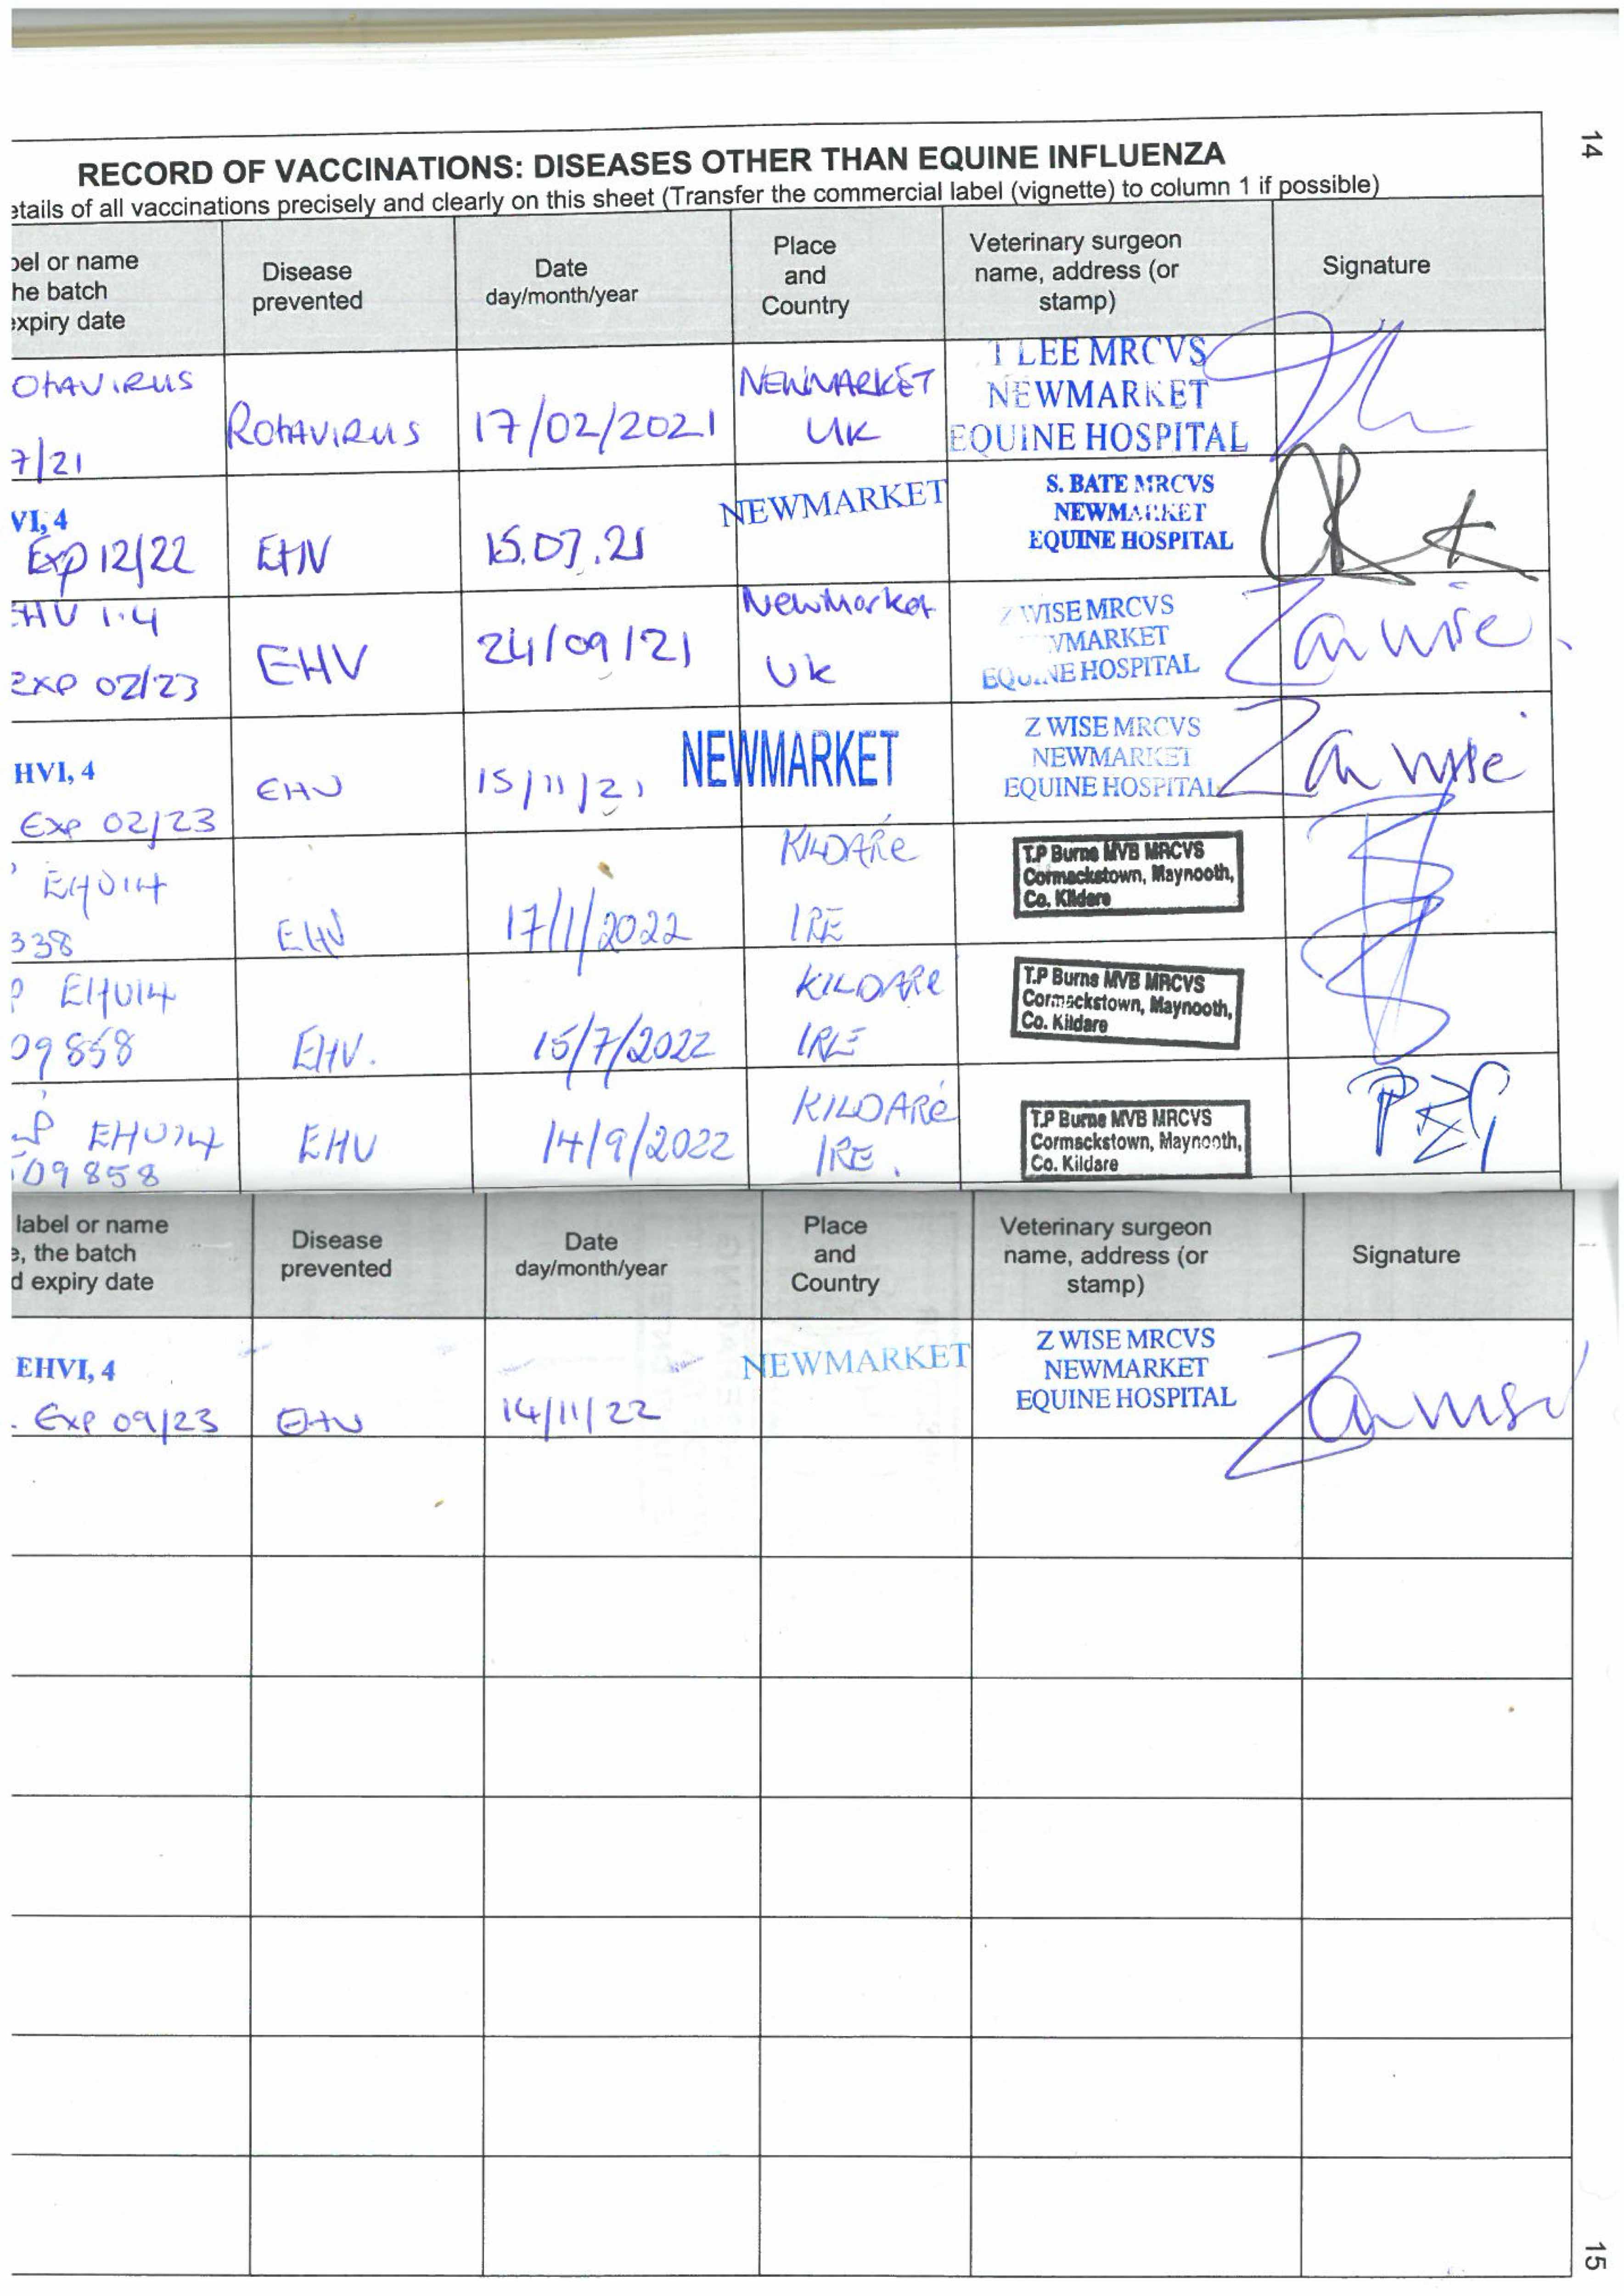 14
RECORD OF VACCINATIONS: DISEASES OTHER THAN EQUINE INFLUENZA
etails of all vaccinations precisely and clearly on this sheet (Transfer the commercial label (vignette) to column 1 if possible)
bel or name
he batch
expiry date
Disease
prevented
Date
day/month/year
Place
and
Country
Veterinary surgeon
name, address (or
stamp)
Signature
OTAVIRUS
7/21
ROTAVIRUS
17/02/2021
NEWMARKET
UK
T LEE MRCVS
NEWMARKET
EQUINE HOSPITAL
VI, 4
Exp 12/22
EHV
15.07.21
NEWMARKET
S. BATE MRCVS
NEWMARKET
EQUINE HOSPITAL
EHV 1.4
exp 02/23
EHV
24/09/21
Newmarket
Uk
Z WISE MRCVS
WMARKET
EQUINE HOSPITAL
Zanwise.
HVI, 4
Exp 02/23
EHV
15/11/21
NEWMARKET
Z WISE MRCVS
NEWMARKET
EQUINE HOSPITAL
Zanwise
EHV14
338
EHV
17/1/2022
KILDARE
IRE
T.P Burns MVB MRCVS
Cormackstown, Maynooth,
Co. Kildare
P EHV14
09858
EHV.
15/7/2022
KILDARE
IRE
T.P Burns MVB MRCVS
Cormackstown, Maynooth,
Co. Kildare
P EHV14
09858
EHV
14/9/2022
KILDARE
IRE.
T.P Burns MVB MRCVS
Cormackstown, Maynooth,
Co. Kildare
label or name
e, the batch
d expiry date
Disease
prevented
Date
day/month/year
Place
and
Country
Veterinary surgeon
name, address (or
stamp)
Signature
EHVI, 4
. Exp 09/23
EHV
14/11/22
NEWMARKET
Z WISE MRCVS
NEWMARKET
EQUINE HOSPITAL
15